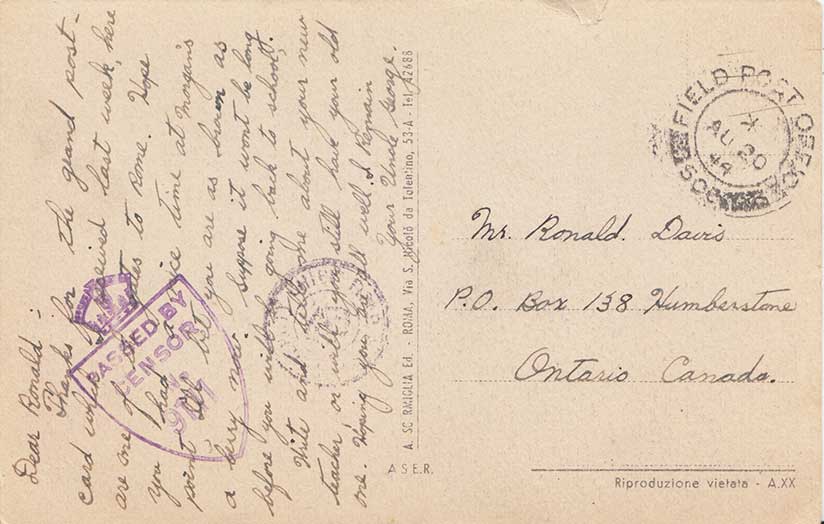 Dear Ronald:
Thanks for the grand post-
card which I received last week, here
are one of to Rome. Hope
you had a nice time at Morgan's
point. I'll bet you are as brown as
a berry now. Suppose it wont be long
before you will be going back to school.
Write and tell me about your new
teacher, or will you still have your old
one. Hoping you are all well. I Remain
Your Uncle George.
PASSED BY
CENSOR
A. SCORMIGLIA Ed. - ROMA, Via S. Nicolò da Tolentino, 53-A - Tel. 42688
A S E R.
FIELD POST OFFICE
AU 20
44
Mr. Ronald. Davis
P.O. Box 138 Humberstone
Ontario Canada.
Riproduzione vietata - A.XX